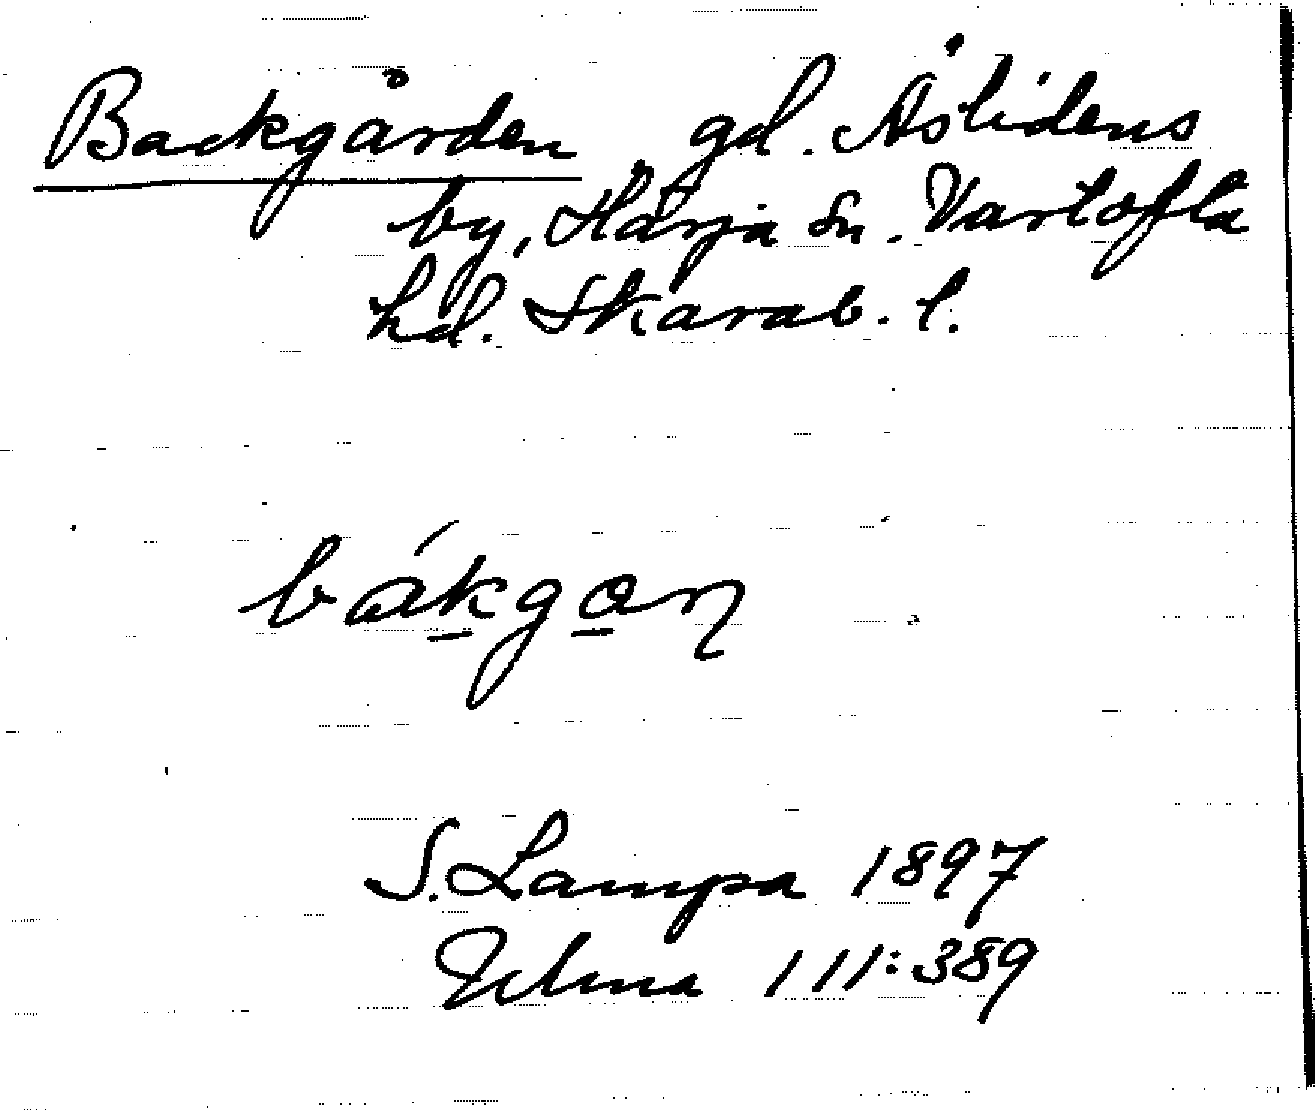 Backgården gd. Åslidens
by, Hårja sn. Vartofta
hd. Skarab. l.
bákgan
S. Lampa 1897
Ulma 111:389